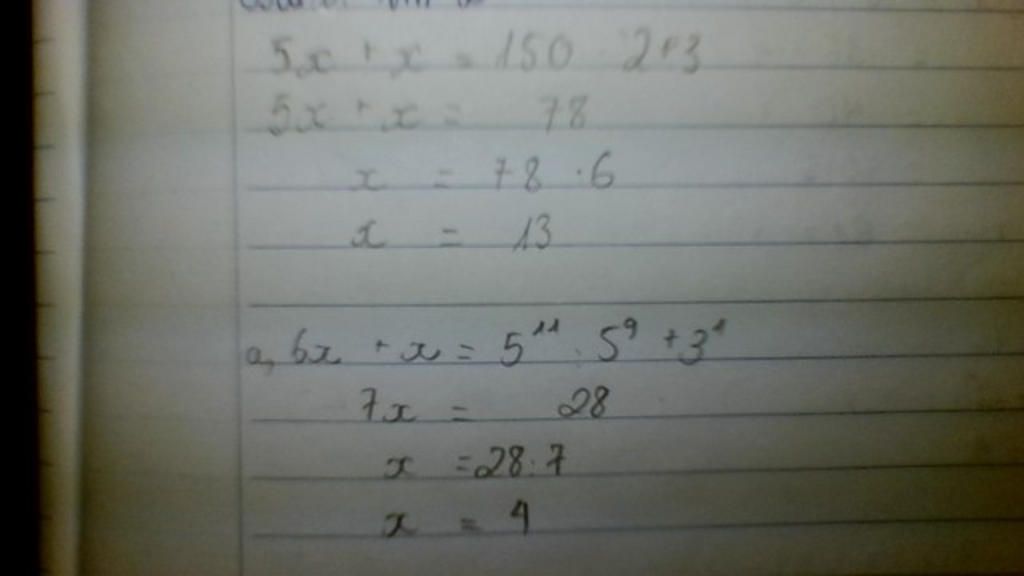 5x + x = 150 2+3
5x + x = 78
x = 78 : 6
x = 13
a, 6x + x = 5¹¹ : 5⁹ + 3¹
7x = 28
x = 28 : 7
x = 4